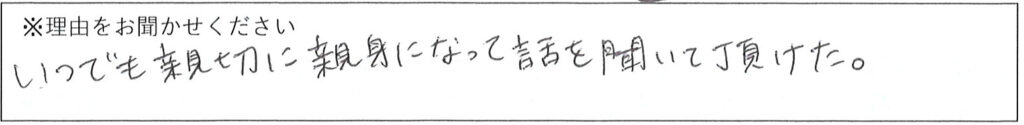 ※理由をお聞かせください
いつでも親切に親身になって話を聞いて頂けた。